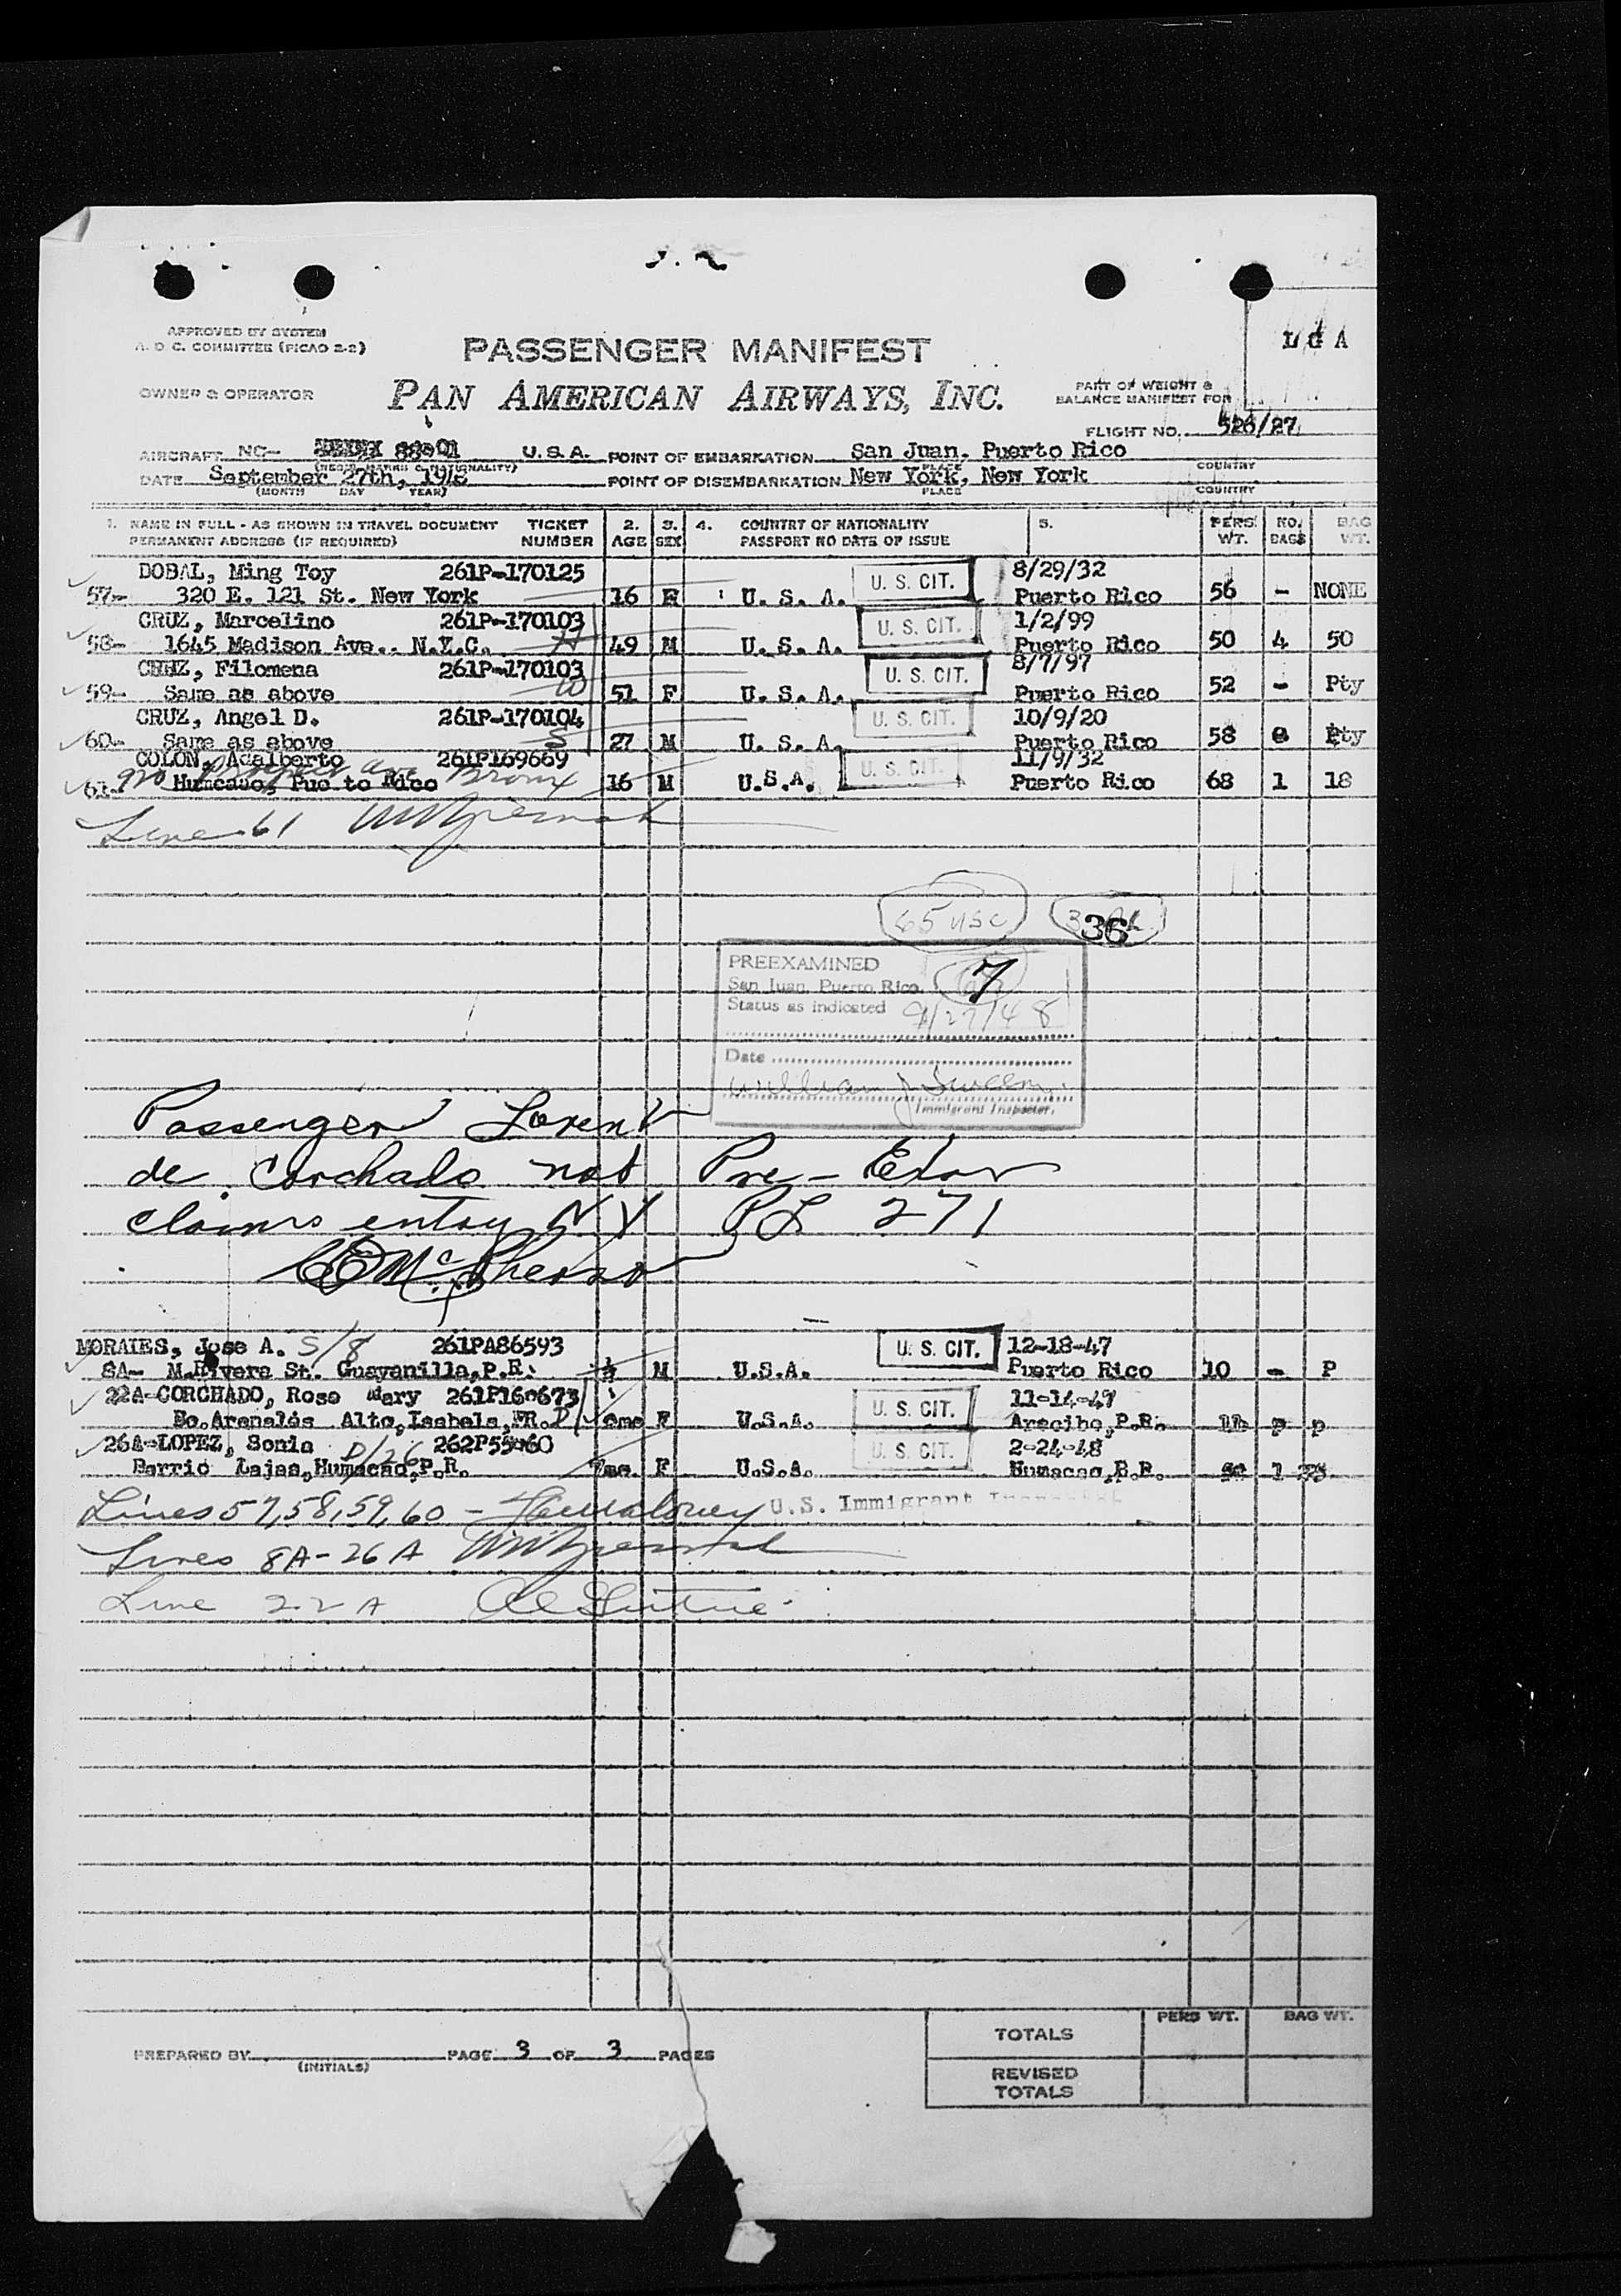 APPROVED BY SYSTEM
A. O C. COMMITTEE (PICAO 2-2)
OWNER & OPERATOR
PASSENGER MANIFEST
PAN AMERICAN AIRWAYS, INC.
L G A
PART OF WEIGHT &
BALANCE MANIFEST FOR
FLIGHT NO. 526/27
AIRCRAFT NC- U.S.A. POINT OF EMBARKATION San Juan, Puerto Rico
(REG'N MARKS & NATIONALITY) PLACE COUNTRY
DATE September 27th, 1948 POINT OF DISEMBARKATION New York, New York
(MONTH DAY YEAR) PLACE COUNTRY
1. NAME IN FULL - AS SHOWN IN TRAVEL DOCUMENT TICKET 2. 3. 4. COUNTRY OF NATIONALITY 5. PERS. NO. BAG
PERMANENT ADDRESS (IF REQUIRED) NUMBER AGE SEX PASSPORT NO DATE OF ISSUE WT. BAGS WT.
DOBAL, Ming Toy 261P-170125 U. S. CIT. 8/29/32
57- 320 E. 121 St. New York 16 U. S. A. Puerto Rico 56 - NONE
CRUZ, Marcelino 261P-170103 U. S. CIT. 1/2/99
58- 1645 Madison Ave.. N.Y.C. H 49 M U. S. A. Puerto Rico 50 4 50
CRUZ, Filomena 261P-170103 U. S. CIT. 8/7/97
59- Same as above W 51 F U. S. A. Puerto Rico 52 - Pty
CRUZ, Angel D. 261P-170104 U. S. CIT. 10/9/20
60- Same as above S 27 M U. S. A. Puerto Rico 58 0 Pty
COLON, Adalberto 261P169669 U. S. CIT. 11/9/32
61- Ave Bronx 16 M U.S.A. Puerto Rico 68 1 18
Line 61
65 USC 36
PREEXAMINED
San Juan, Puerto Rico, 7
Status as indicated 9/27/48
Date
William J
Immigrant Inspector.
Passenger Lorent
de Corchado not Pre-Exam
claims entry N Y PL 271
MORALES, Jose A. S/8 261PA86593 U. S. CIT. 12-18-47
8A- M.Rivera St. Guayanilla,P.R. M U.S.A. Puerto Rico 10 - P
22A-CORCHADO, Rose Mary U. S. CIT. 11-14-47
Bo.Arenales Alto,Isabela,PR. F U.S.A. Arecibo,P.R. P P
26A-LOPEZ, Sonia D/26 U. S. CIT. 2-24-48
Barrio Lajas,Humacao,P.R. 7mo. F U.S.A. Humacao,P.R. 1
Lines 57,58,59,60 - U.S. Immigrant
Lines 8A-26A
Line 22A
TOTALS PERS WT. BAG WT.
PREPARED BY PAGE 3 OF 3 PAGES
(INITIALS)
REVISED
TOTALS